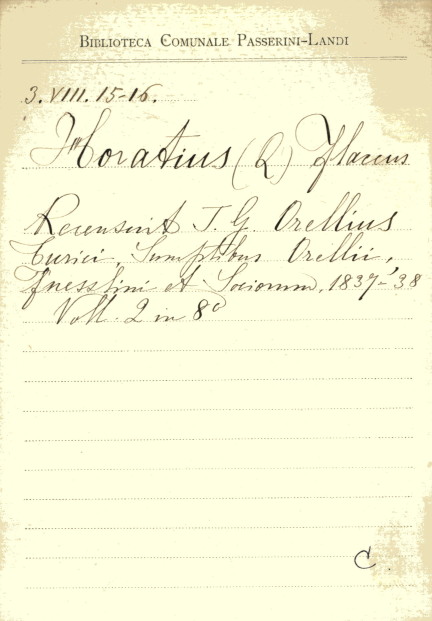 BIBLIOTECA COMUNALE PASSERINI-LANDI
3. VIII. 15-16.
Horatius (Q) Flaccus
Recensuit J. G. Orellius
Turici, Sumptibus Orellii,
Fuesslini et Sociorum, 1837-'38
Voll. 2 in 8°
C.